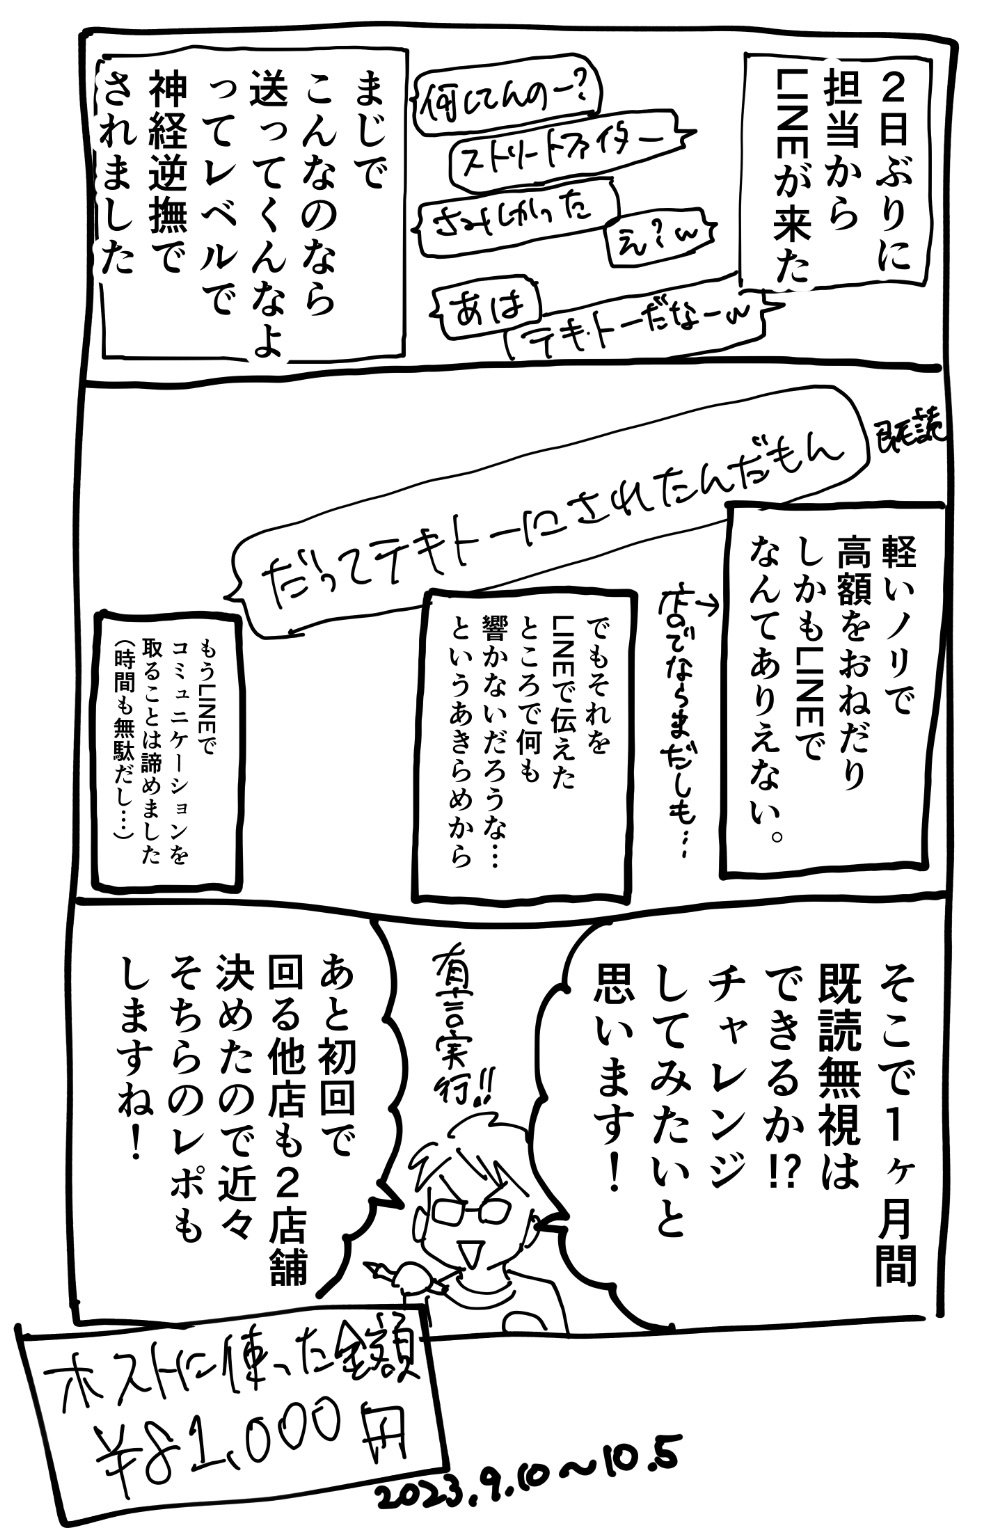 ２日ぶりに
担当から
LINEが来た
何してんのー？
ストリートファイター
さみしかった
え？w
あは
テキトーだなーw
まじで
こんなのなら
送ってくんなよ
ってレベルで
神経逆撫で
されました
だってテキトーにされたんだもん
既読
軽いノリで
高額をおねだり
しかもLINEで
なんてありえない。
店でならまだしも…
でもそれを
LINEで伝えた
ところで何も
響かないだろうな…
というあきらめから
もうLINEで
コミュニケーションを
取ることは諦めました
（時間も無駄だし…）
そこで1ヶ月間
既読無視は
できるか!?
チャレンジ
してみたいと
思います！
有言実行!!
あと初回で
回る他店も２店舗
決めたので近々
そちらのレポも
しますね！
ホストに使った金額
¥81,000円
2023.9.10〜10.5